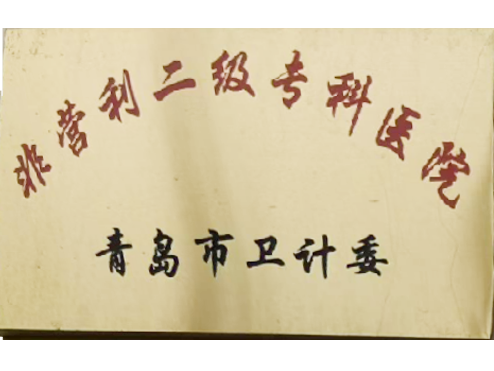 非营利二级专科医院
青岛市卫计委